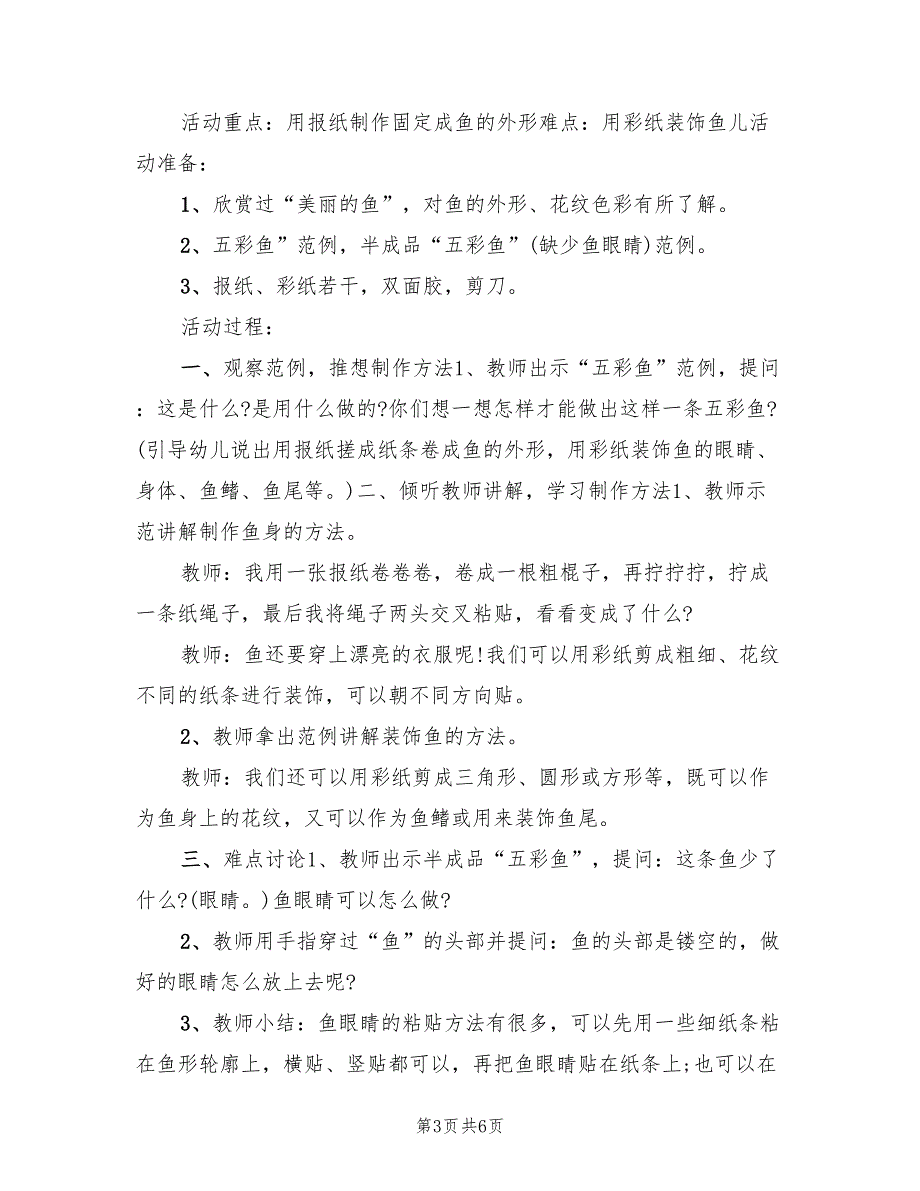 活动重点：用报纸制作固定成鱼的外形难点：用彩纸装饰鱼儿活
动准备：
1、欣赏过“美丽的鱼”，对鱼的外形、花纹色彩有所了解。
2、五彩鱼”范例，半成品“五彩鱼”(缺少鱼眼睛)范例。
3、报纸、彩纸若干，双面胶，剪刀。
活动过程：
一、观察范例，推想制作方法1、教师出示“五彩鱼”范例，提问
：这是什么?是用什么做的?你们想一想怎样才能做出这样一条五彩鱼?
(引导幼儿说出用报纸搓成纸条卷成鱼的外形，用彩纸装饰鱼的眼睛、
身体、鱼鳍、鱼尾等。)二、倾听教师讲解，学习制作方法1、教师示
范讲解制作鱼身的方法。
教师：我用一张报纸卷卷卷，卷成一根粗棍子，再拧拧拧，拧成
一条纸绳子，最后我将绳子两头交叉粘贴，看看变成了什么?
教师：鱼还要穿上漂亮的衣服呢!我们可以用彩纸剪成粗细、花纹
不同的纸条进行装饰，可以朝不同方向贴。
2、教师拿出范例讲解装饰鱼的方法。
教师：我们还可以用彩纸剪成三角形、圆形或方形等，既可以作
为鱼身上的花纹，又可以作为鱼鳍或用来装饰鱼尾。
三、难点讨论1、教师出示半成品“五彩鱼”，提问：这条鱼少了
什么?(眼睛。)鱼眼睛可以怎么做?
2、教师用手指穿过“鱼”的头部并提问：鱼的头部是镂空的，做
好的眼睛怎么放上去呢?
3、教师小结：鱼眼睛的粘贴方法有很多，可以先用一些细纸条粘
在鱼形轮廓上，横贴、竖贴都可以，再把鱼眼睛贴在纸条上;也可以在
第3页 共6页